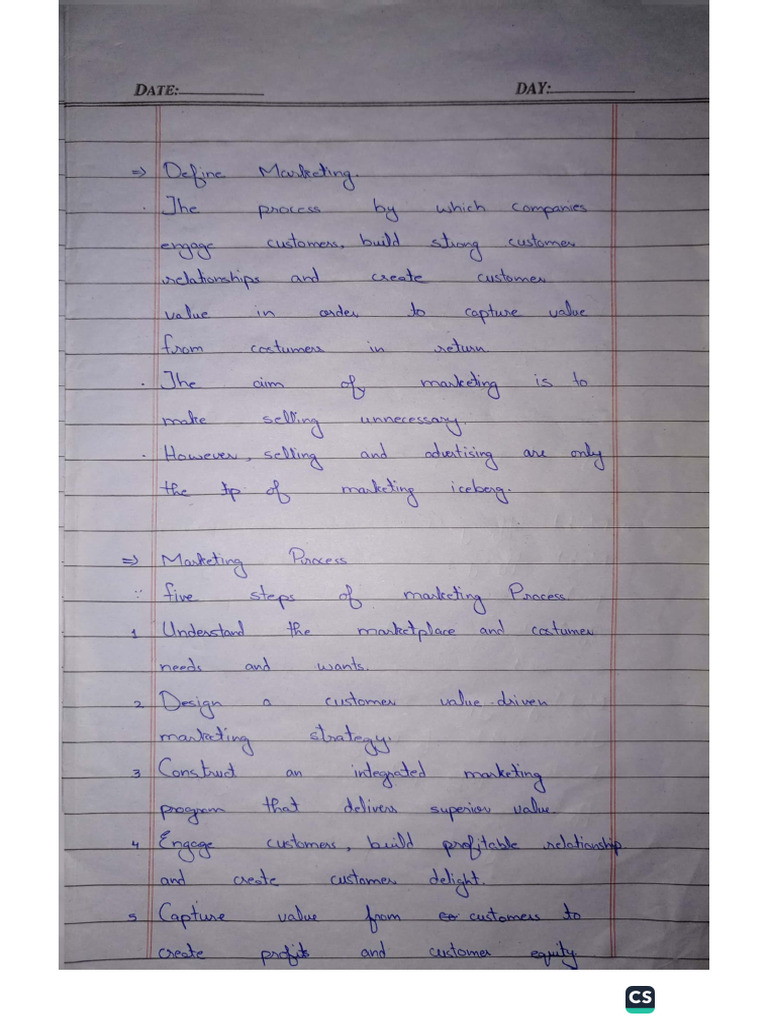 DATE:____________ DAY:____________
⇒ Define Marketing.
. The process by which companies
engage customers, build strong customer
relationships and create customer
value in order to capture value
from costumers in return.
. The aim of marketing is to
make selling unnecessary.
. However, selling and advertising are only
the tip of marketing iceberg.
⇒ Marketing Process
∵ five steps of marketing Process.
1 Understand the marketplace and costumer
needs and wants.
2. Design a customer value-driven
marketing strategy.
3 Construct an integrated marketing
program that delivers superior value.
4 Engage customers, build profitable relationship
and create customer delight.
5 Capture value from customers to
create profits and customer equity
CS